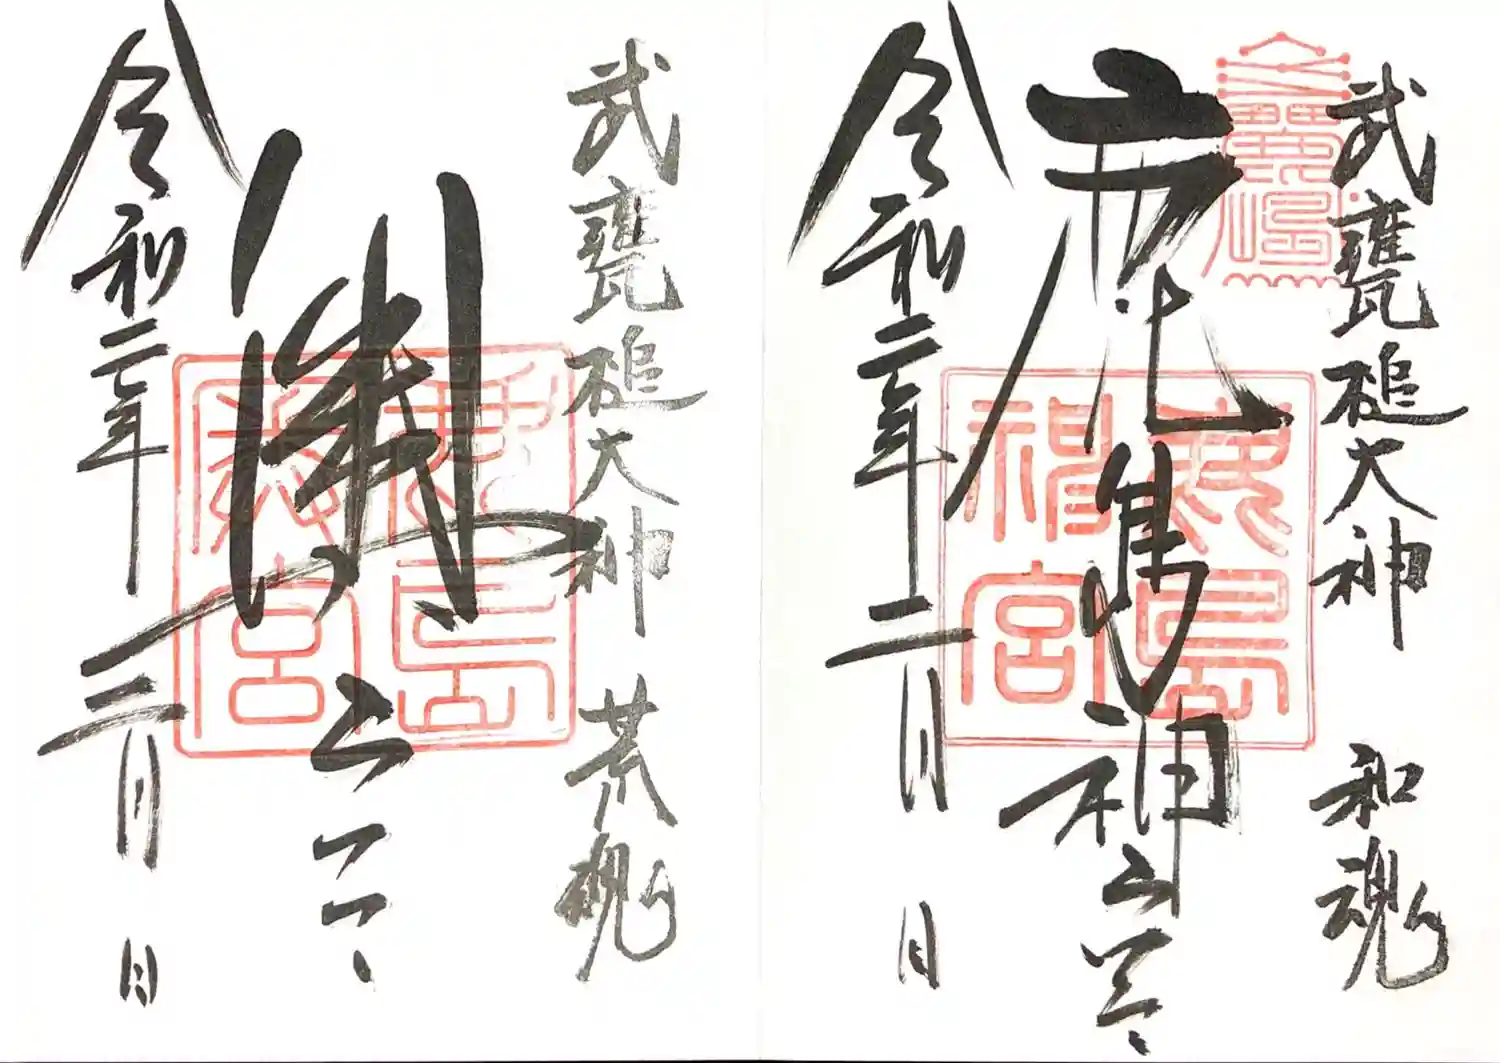 武甕槌大神 和魂
鹿島神宮
令和二年二月 日
武甕槌大神 荒魂
奥宮
令和二年二月 日
鹿島神宮